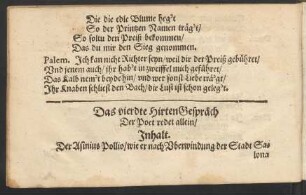 Die die edle Blume heg't
So der Printzen Namen träg't/
So soltu den Preiß bekommen/
Das du mir den Sieg genommen.
Palem. Jch kan nicht Richter seyn/ weil dir der Preiß gebühret/
Und jenem auch/ ihr hab't in zweiffel mich geführet/
Das Kalb nem't beydehin/ und wer sonst Liebe träg't/
Jhr Knaben schliest den Bach/ die Lust ist schon geleg't.
Das vierdte HirtenGespräch
Der Poet redet allein/
Jnhalt.
Der Asinius Pollio/ wie er nach Uberwindung der Stadt Sa-
lona